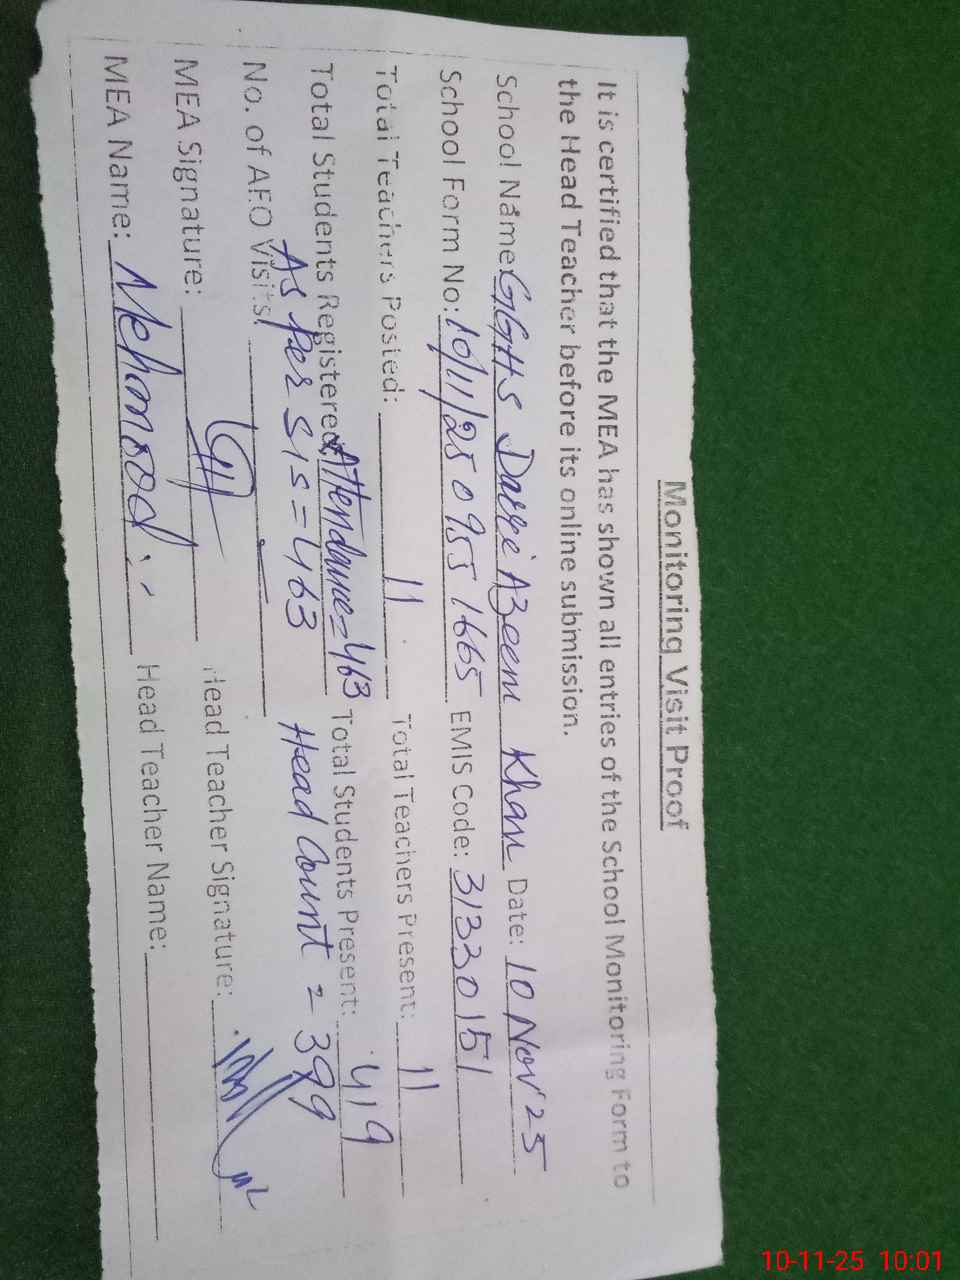 Monitoring Visit Proof
It is certified that the MEA has shown all entries of the School Monitoring Form to
the Head Teacher before its online submission.
School Name: GGHS Darri Azeem Khan Date: 10 Nov 25
School Form No: 10/11/25 0955 1665 EMIS Code: 31330151
Total Teachers Posted: 11 Total Teachers Present: 11
Total Students Registered: Attendance = 463 Total Students Present: 419
As per SIS = 463 Head Count = 399
No. of AEO Visits:
MEA Signature: Head Teacher Signature:
MEA Name: Mehmood Head Teacher Name:
10-11-25 10:01